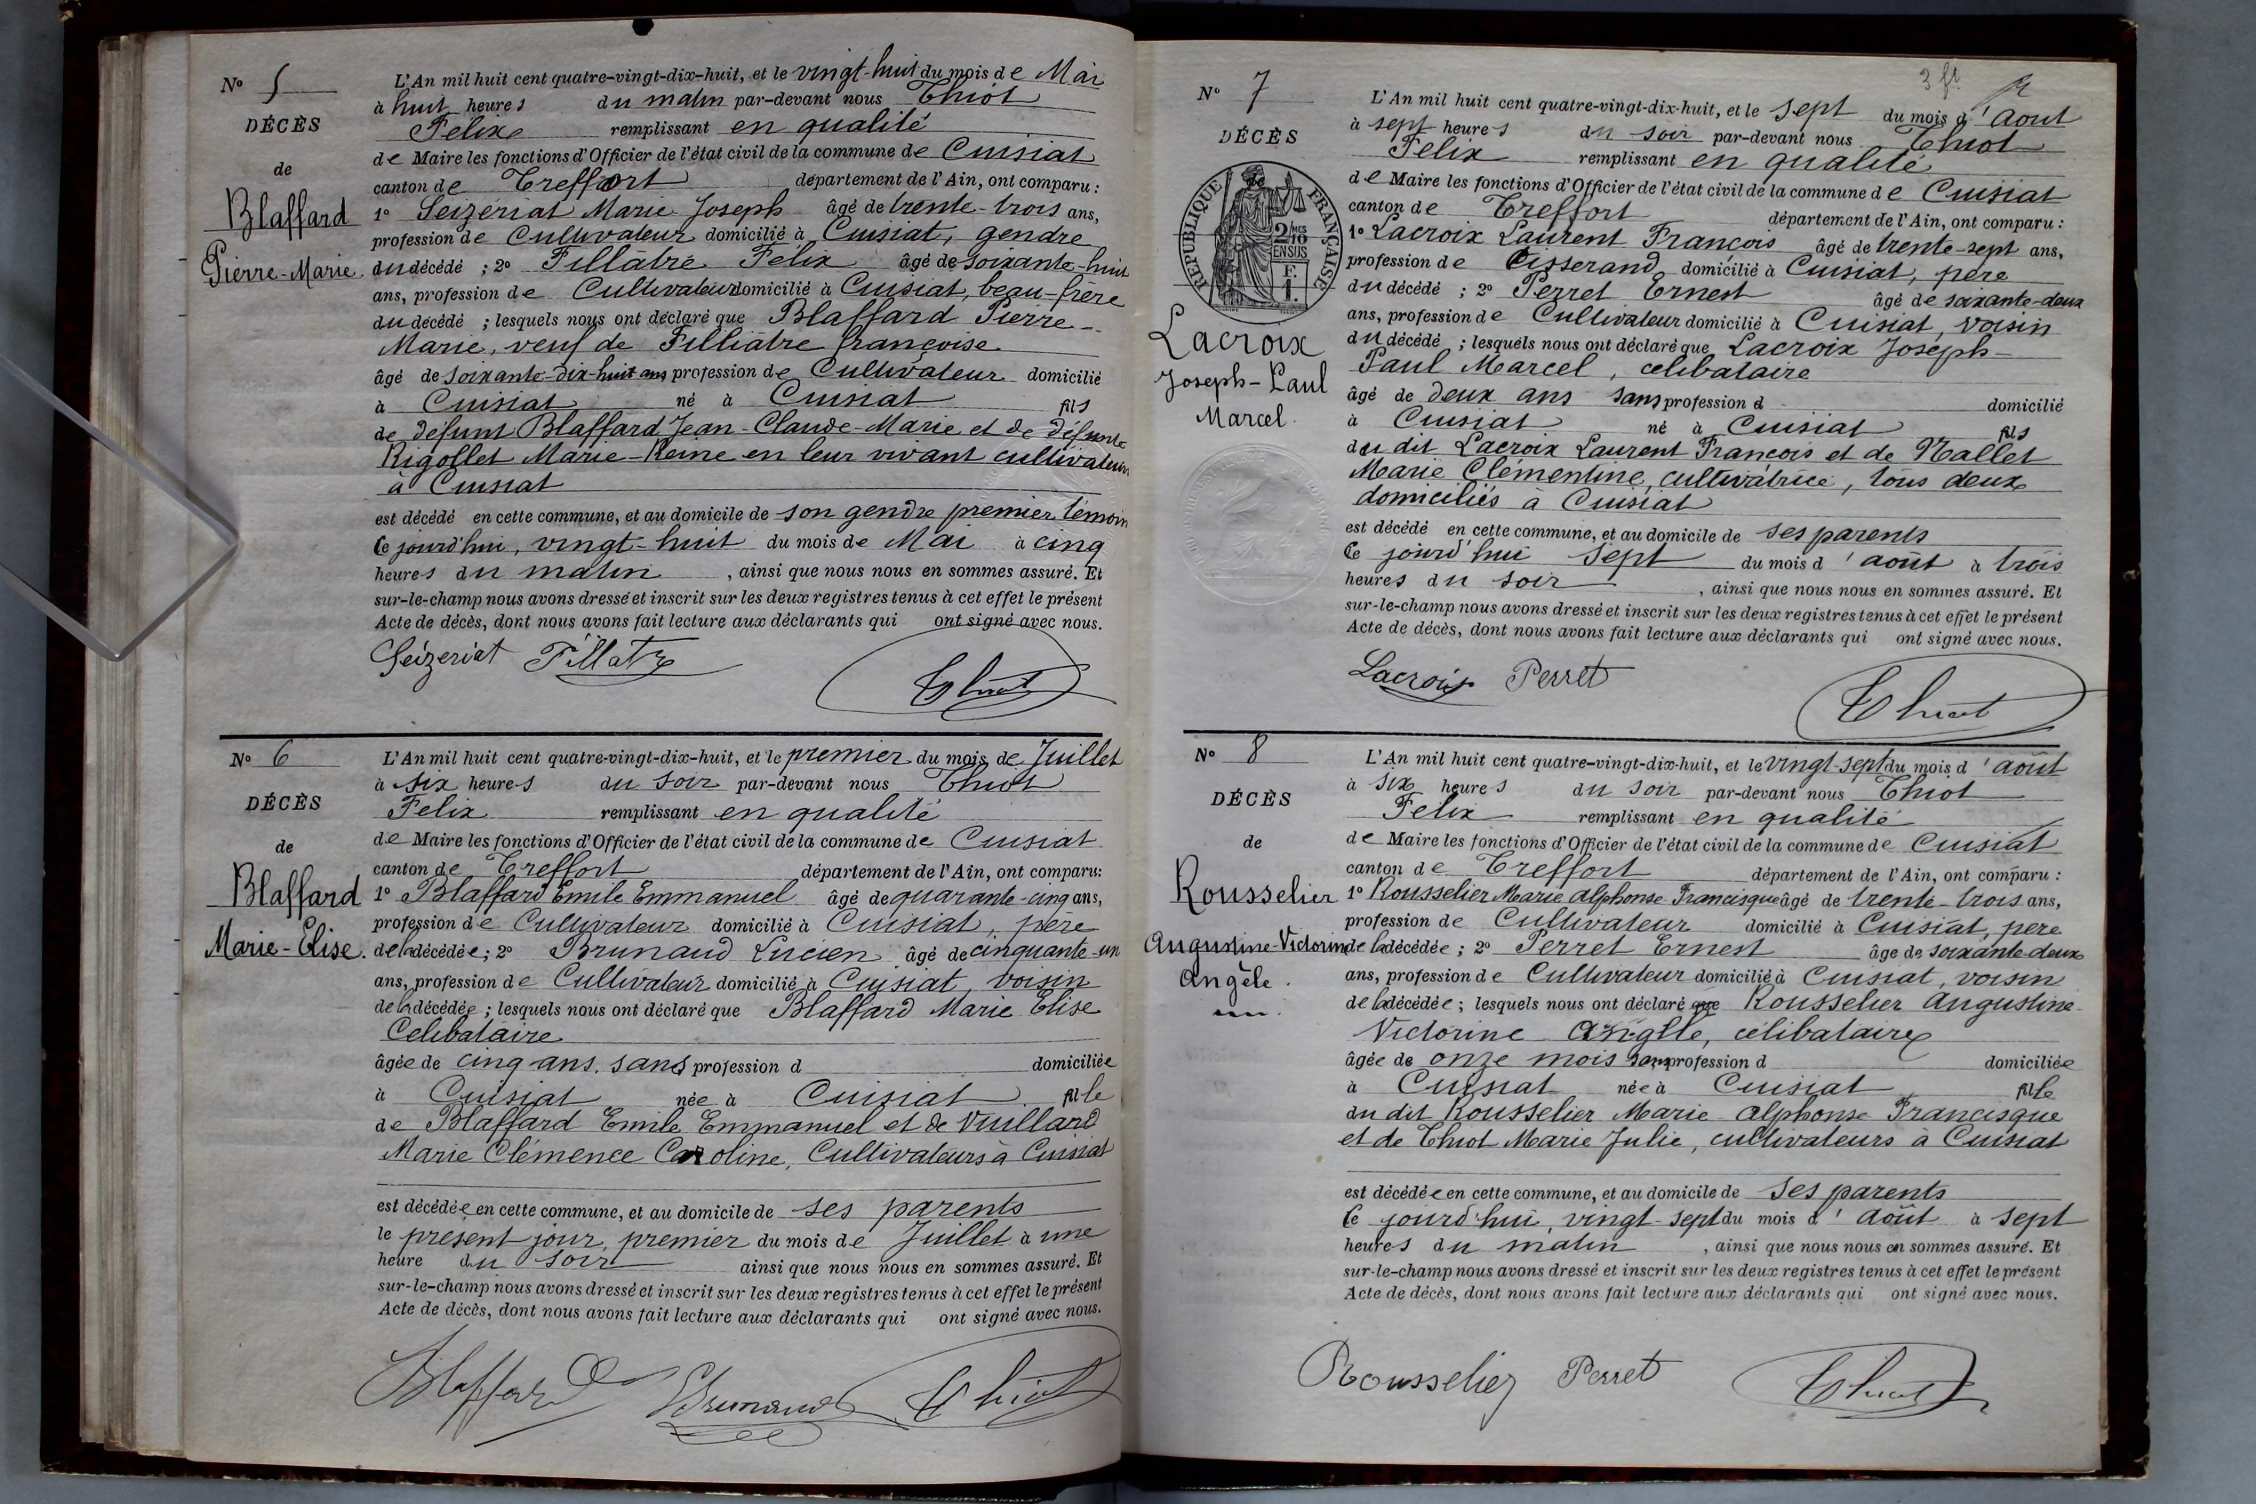 Nº 5
DÉCÈS
de
Blaffard
Pierre-Marie.
L'An mil huit cent quatre-vingt-dix-huit, et le vingt-huit du mois de Mai
à huit heures du matin par-devant nous Thiot
Félix remplissant en qualité
de Maire les fonctions d'Officier de l'état civil de la commune de Cuisiat
canton de Treffort département de l'Ain, ont comparu :
1º Seizeriat Marie Joseph âgé de trente-trois ans,
profession de Cultivateur domicilié à Cuisiat, gendre
du décédé ; 2º Fillatre Félix âgé de soixante-huit
ans, profession de Cultivateur domicilié à Cuisiat, beau-frère
du décédé ; lesquels nous ont déclaré que Blaffard Pierre-
Marie, veuf de Filliatre françoise
âgé de soixante-dix-huit ans profession de Cultivateur domicilié
à Cuisiat né à Cuisiat fils
de défunt Blaffard Jean-Claude-Marie et de défunte
Rigollet Marie-Reine en leur vivant cultivateurs
à Cuisiat
est décédé en cette commune, et au domicile de son gendre premier témoin
Ce jourd'hui, vingt-huit du mois de Mai à cinq
heures du matin , ainsi que nous nous en sommes assuré. Et
sur-le-champ nous avons dressé et inscrit sur les deux registres tenus à cet effet le présent
Acte de décès, dont nous avons fait lecture aux déclarants qui ont signé avec nous.
Seizeriat Fillatre
Thiot
Nº 6
DÉCÈS
de
Blaffard
Marie-Elise.
L'An mil huit cent quatre-vingt-dix-huit, et le premier du mois de Juillet
à six heures du soir par-devant nous Thiot
Felix remplissant en qualité
de Maire les fonctions d'Officier de l'état civil de la commune de Cuisiat
canton de Treffort département de l'Ain, ont comparu:
1º Blaffard Emile Emmanuel âgé de quarante-cinq ans,
profession de Cultivateur domicilié à Cuisiat, père
de la décédée; 2º Brunaud Lucien âgé de cinquante-un
ans, profession de Cultivateur domicilié à Cuisiat, voisin
de la décédée ; lesquels nous ont déclaré que Blaffard Marie Elise
Celibataire
âgée de cinq ans. sans profession d domiciliée
à Cuisiat née à Cuisiat fille
de Blaffard Emile Emmanuel et de Vuillard
Marie Clémence Caroline, Cultivateurs à Cuisiat
est décédée en cette commune, et au domicile de ses parents
le présent jour, premier du mois de Juillet à une
heure du soir ainsi que nous nous en sommes assuré. Et
sur-le-champ nous avons dressé et inscrit sur les deux registres tenus à cet effet le présent
Acte de décès, dont nous avons fait lecture aux déclarants qui ont signé avec nous.
Blaffard Brunaud Thiot
3 ft
Nº 7
DÉCÈS
RÉPUBLIQUE FRANÇAISE
2/10
EN SUS
F.
1.
Lacroix
Joseph-Paul
Marcel.
L'An mil huit cent quatre-vingt-dix-huit, et le sept du mois d'Aout
à sept heures du soir par-devant nous Thiot
Felix remplissant en qualité
de Maire les fonctions d'Officier de l'état civil de la commune de Cuisiat
canton de Treffort département de l'Ain, ont comparu :
1º Lacroix Laurent François âgé de trente-sept ans,
profession de Tisserand domicilié à Cuisiat, père
du décédé ; 2º Perret Ernest âgé de soixante-deux
ans, profession de Cultivateur domicilié à Cuisiat, voisin
du décédé ; lesquels nous ont déclaré que Lacroix Joseph-
Paul Marcel, celibataire
âgé de deux ans sans profession d domicilié
à Cuisiat né à Cuisiat fils
du dit Lacroix Laurent François et de Nallet
Marie Clémentine, cultivatrice, tous deux
domiciliés à Cuisiat
est décédé en cette commune, et au domicile de ses parents
Ce jourd'hui sept du mois d'août à trois
heures du soir , ainsi que nous nous en sommes assuré. Et
sur-le-champ nous avons dressé et inscrit sur les deux registres tenus à cet effet le présent
Acte de décès, dont nous avons fait lecture aux déclarants qui ont signé avec nous.
Lacroix Perret
Thiot
Nº 8
DÉCÈS
de
Rousselier
Augustine-Victorine
Angèle.
L'An mil huit cent quatre-vingt-dix-huit, et le vingt-sept du mois d'août
à six heures du soir par-devant nous Thiot
Felix remplissant en qualité
de Maire les fonctions d'Officier de l'état civil de la commune de Cuisiat
canton de Treffort département de l'Ain, ont comparu :
1º Rousselier Marie Alphonse Francisque âgé de trente-trois ans,
profession de Cultivateur domicilié à Cuisiat, pere
de la décédée ; 2º Perret Ernest âge de soixante-deux
ans, profession de Cultivateur domicilié à Cuisiat, voisin
de la décédée ; lesquels nous ont déclaré que Rousselier Augustine-
Victorine Angèle, célibataire
âgée de onze mois sans profession d domiciliée
à Cuisiat née à Cuisiat fille
du dit Rousselier Marie Alphonse Francisque
et de Thiot Marie Julie, cultivateurs à Cuisiat
est décédée en cette commune, et au domicile de ses parents
Ce jourd'hui, vingt-sept du mois d'août à sept
heures du matin , ainsi que nous nous en sommes assuré. Et
sur-le-champ nous avons dressé et inscrit sur les deux registres tenus à cet effet le présent
Acte de décès, dont nous avons fait lecture aux déclarants qui ont signé avec nous.
Rousselier Perret Thiot